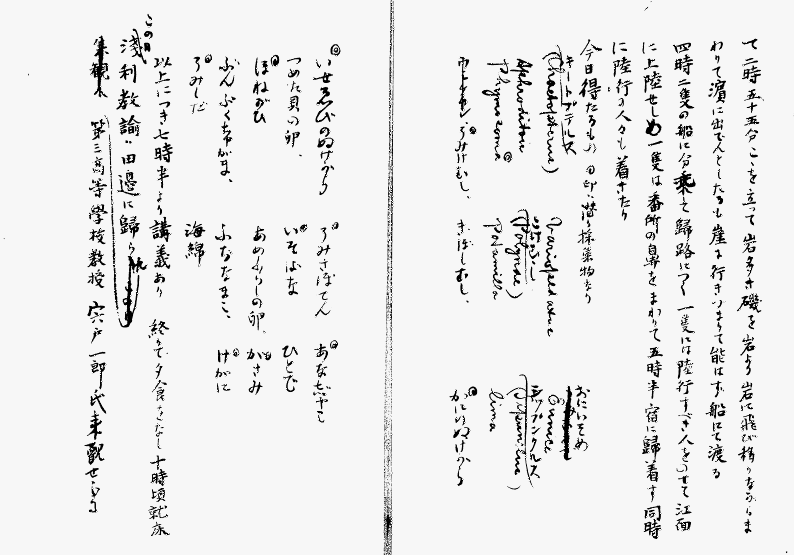 て二時五十五分こゝを立つて岩多き磯を岩より岩に飛び移りながらま
わりて濱に出でんとしたるも崖に行きつまりて能はず船にて渡る
四時二隻の船に分乗して歸路につく一隻には陸行すべき人をのせて江面
に上陸せしめ一隻は番所の鼻をまわりて五時半宿に歸着す同時
に陸行の人々も着きたり
今日得たるもの ◎印ハ潜り採集物なり
キートプテルス おにいそめ
(Chaetopterus) Eunice
Aphroditou (Polynoe) シプンクルス
Phynosoma◎ Polynoella (Sipunculus)
lima
うみけむし、 きぼしむし、 ◎かにのぬけから
◎いせえびのぬけから ◎うみさぼてん ◎あなじやこ
つめた貝の卵、 ◎いそばな ひとで
◎ほねがひ あめふらしの卵、 ◎がざみ
ぶんぶくちやがま、 ふななまこ、 ◎けがに
◎うみしだ 海綿
以上につき七時半より講義あり 終りて夕食をなし十時頃就床
この日
淺利教諭ハ田邊に歸らる
第三高等學校教授 宍戸一郎氏来觀せらる